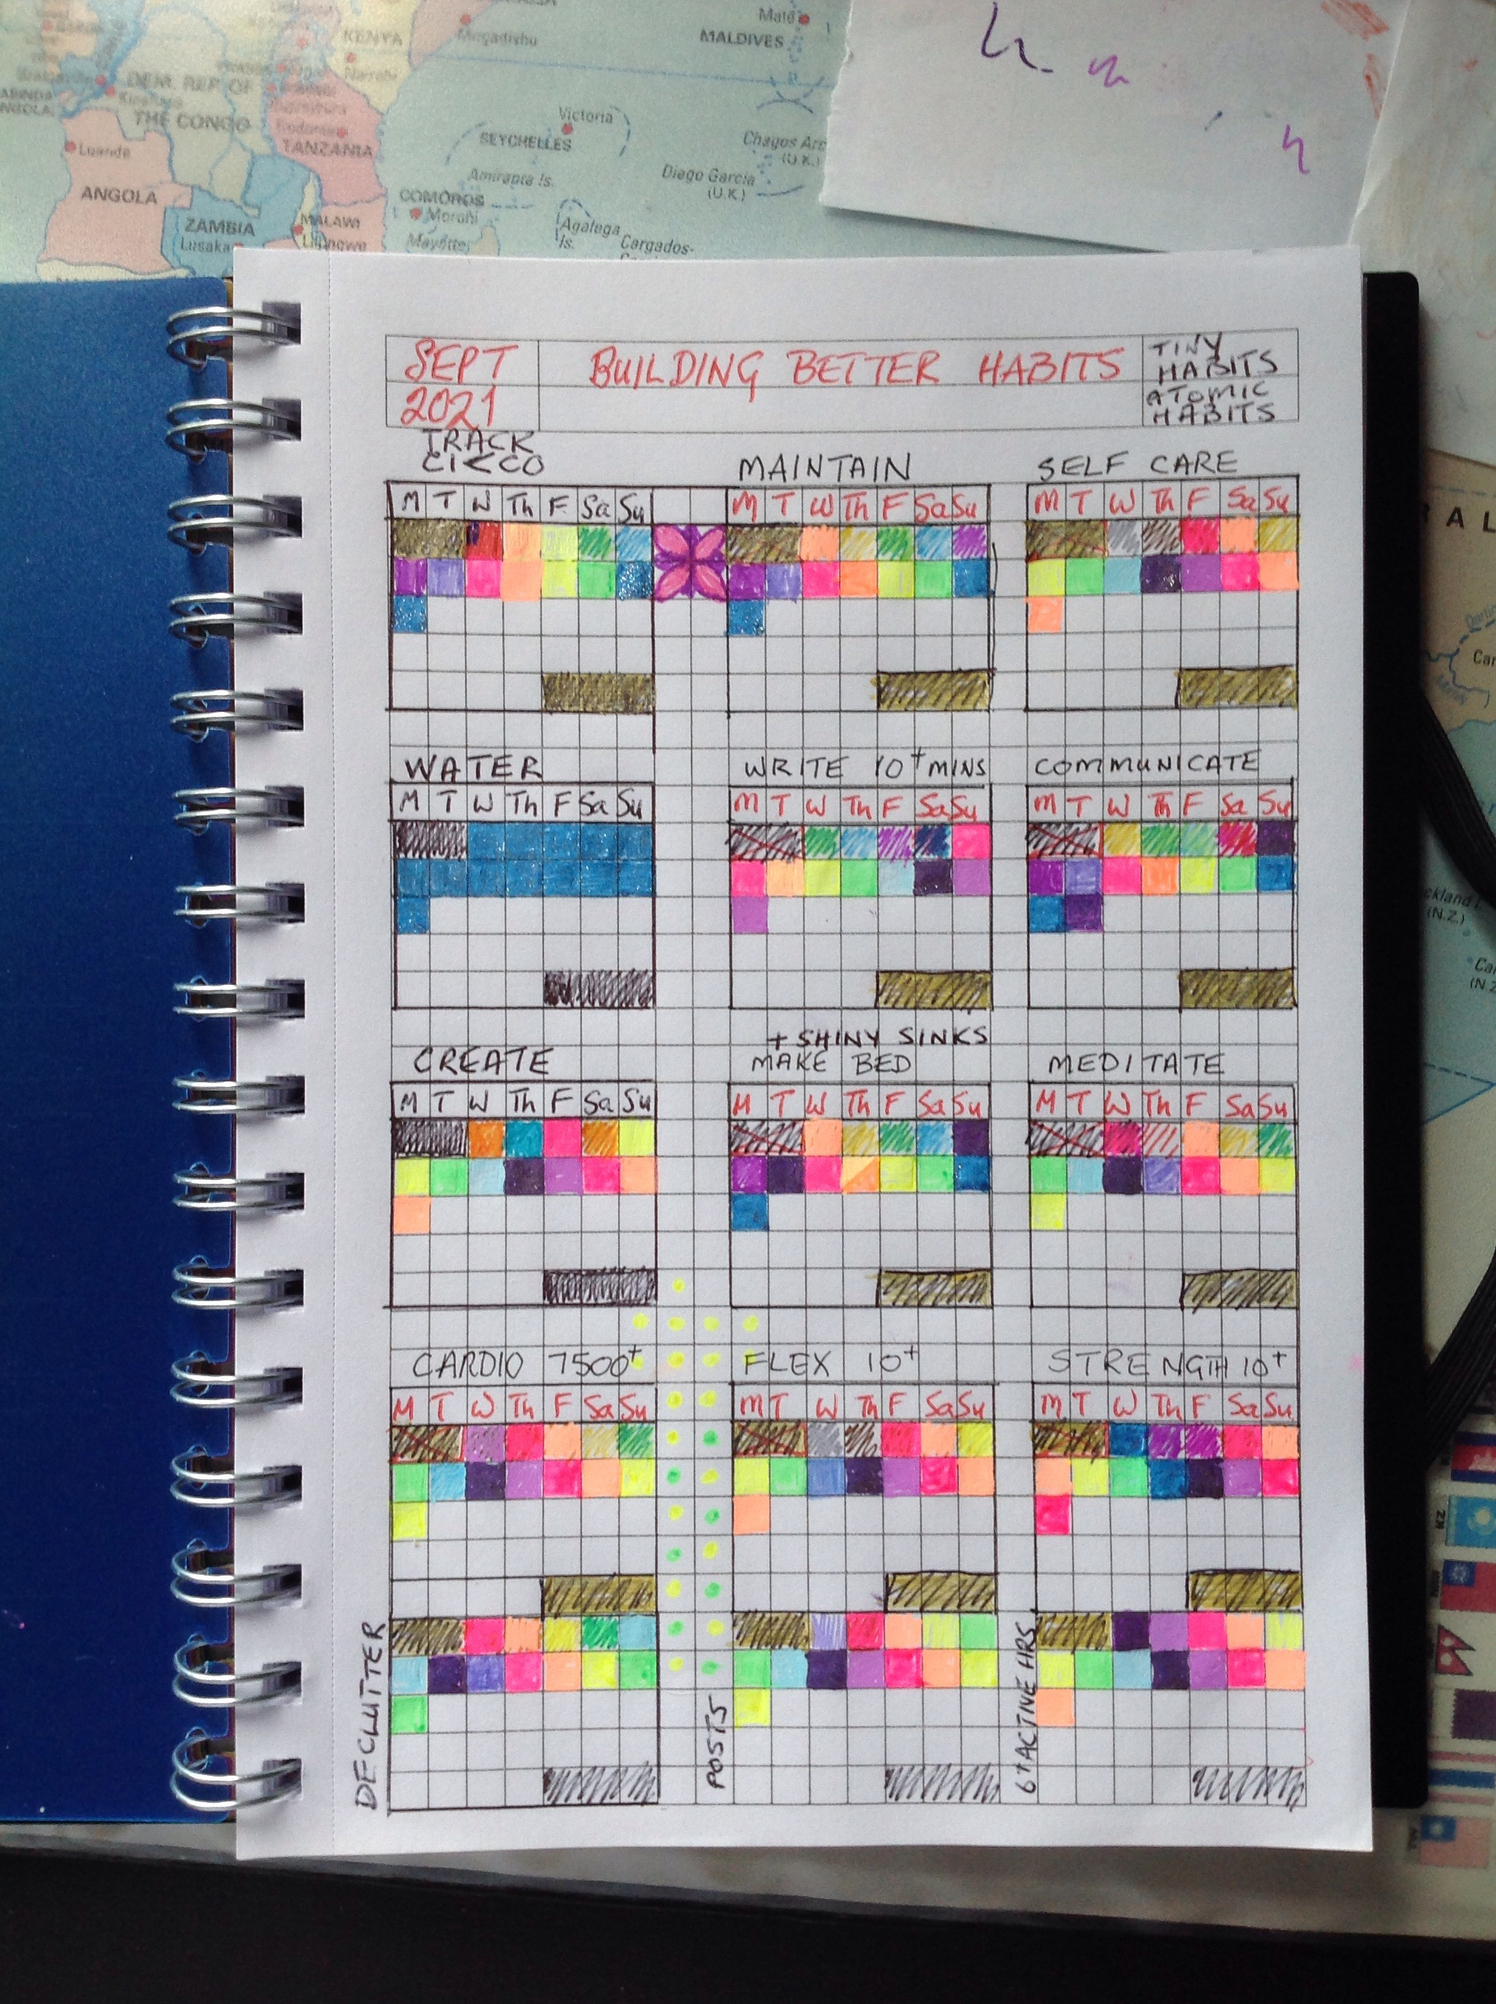 KENYA
Mogadishu
Nairobi
Male
MALDIVES
DEM. REP. OF
THE CONGO
TANZANIA
Luanda
ANGOLA
ZAMBIA
Lusaka
MALAWI
Victoria
SEYCHELLES
Amirante Is.
COMOROS
Moroni
Agalega
Is.
Cargados-
Chagos Arc
(U.K.)
Diego Garcia
(U.K.)
SEPT
2021
BUILDING BETTER HABITS
TINY
HABITS
ATOMIC
HABITS
TRACK
CI<CO
MAINTAIN
SELF CARE
M T W Th F Sa Su
M T W Th F Sa Su
M T W Th F Sa Su
WATER
WRITE 10+ MINS
COMMUNICATE
M T W Th F Sa Su
M T W Th F Sa Su
M T W Th F Sa Su
CREATE
+ SHINY SINKS
MAKE BED
MEDITATE
M T W Th F Sa Su
M T W Th F Sa Su
M T W Th F Sa Su
CARDIO 7500+
FLEX 10+
STRENGTH 10+
M T W Th F Sa Su
M T W Th F Sa Su
M T W Th F Sa Su
DECLUTTER
POSTS
6+ ACTIVE HRS
R A L
ckland I
(N.Z.)